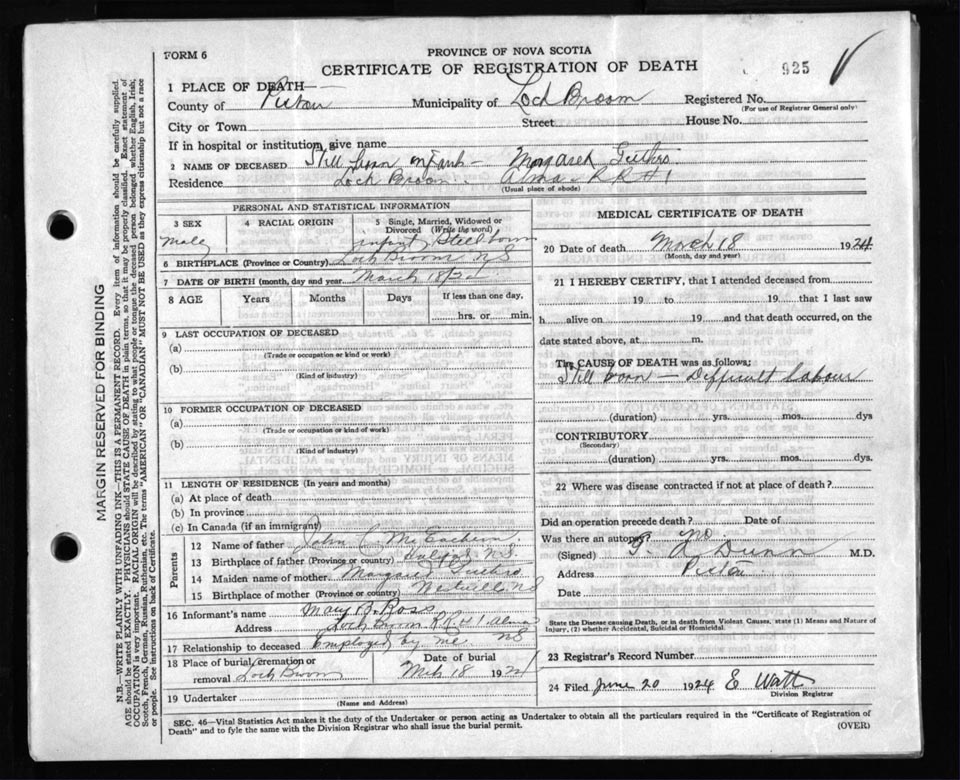 FORM 6
PROVINCE OF NOVA SCOTIA
CERTIFICATE OF REGISTRATION OF DEATH
925
1 PLACE OF DEATH—
County of Pictou Municipality of Loch Broom Registered No.
(For use of Registrar General only)
City or Town Street House No.
If in hospital or institution, give name
2 NAME OF DECEASED Still born infant — Margaret
Residence Loch Broom. Alma R R #1
(Usual place of abode)
PERSONAL AND STATISTICAL INFORMATION
3 SEX 4 RACIAL ORIGIN 5 Single, Married, Widowed or Divorced (Write the word)
Male infant Stillborn
6 BIRTHPLACE (Province or Country) Loch Broom NS
7 DATE OF BIRTH (month, day and year) March 18/24
8 AGE Years Months Days If less than one day,
hrs. or min.
9 LAST OCCUPATION OF DECEASED
(a)
(Trade or occupation or kind or work)
(b)
(Kind of industry)
10 FORMER OCCUPATION OF DECEASED
(a)
(Trade or occupation or kind of work)
(b)
(Kind of industry)
11 LENGTH OF RESIDENCE (In years and months)
(a) At place of death
(b) In province
(c) In Canada (if an immigrant)
Parents
12 Name of father John C McEachern.
13 Birthplace of father (Province or country) N.S.
14 Maiden name of mother Margaret
15 Birthplace of mother (Province or country) N S
16 Informant's name Mary B. Ross
Address Loch Broom R R #1 Alma
NS
17 Relationship to deceased Employed by me.
18 Place of burial, cremation or Date of burial
removal Loch Broom Mch 18 1924
19 Undertaker
(Name and Address)
MEDICAL CERTIFICATE OF DEATH
20 Date of death March 18 1924
(Month, day and year)
21 I HEREBY CERTIFY, that I attended deceased from
19 to 19 that I last saw
h alive on 19 and that death occurred, on the
date stated above, at m.
The CAUSE OF DEATH was as follows:
Still born — Difficult Labour
(duration) yrs. mos. dys
CONTRIBUTORY
(Secondary)
(duration) yrs. mos. dys.
22 Where was disease contracted if not at place of death?
Did an operation precede death? Date of
Was there an autopsy? no
(Signed) Dunn M.D.
Address Pictou
Date
State the Disease causing Death, or in death from Violent Causes, state (1) Means and Nature of Injury, (2) whether Accidental, Suicidal or Homicidal.
23 Registrar's Record Number
24 Filed June 20 1924 E Watt
Division Registrar
SEC. 46—Vital Statistics Act makes it the duty of the Undertaker or person acting as Undertaker to obtain all the particulars required in the "Certificate of Registration of
Death" and to fyle the same with the Division Registrar who shall issue the burial permit.
(OVER)
MARGIN RESERVED FOR BINDING
N.B.—WRITE PLAINLY WITH UNFADING INK—THIS IS A PERMANENT RECORD. Every item of information should be carefully supplied.
AGE should be stated EXACTLY. PHYSICIANS should STATE CAUSE OF DEATH in plain terms, so that it may be properly classified. Exact statement of
OCCUPATION is very important. RACIAL ORIGIN will be described by stating to what people or tongue the deceased person belonged whether English, Irish,
Scotch, French, German, Russian, Ruthenian, etc. The terms "AMERICAN" OR "CANADIAN" MUST NOT BE USED as they express citizenship but not a race
or people. See instructions on back of Certificate.